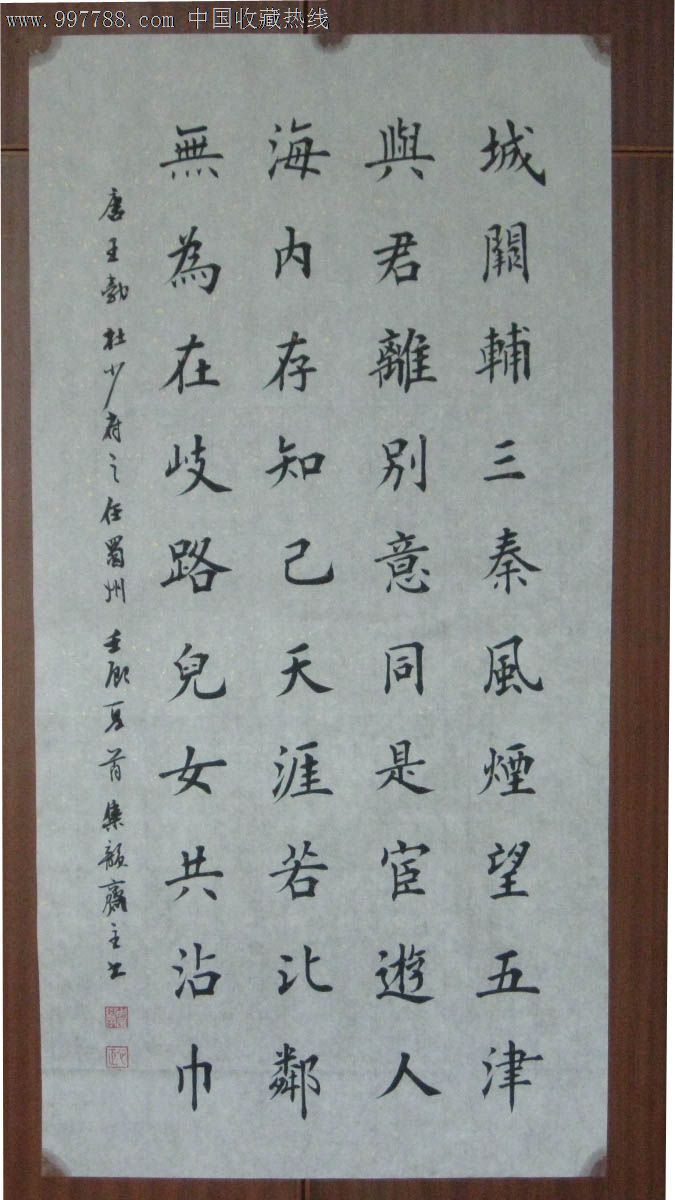 www.997788.com 中国收藏热线
城闕輔三秦風煙望五津
與君離别意同是宦遊人
海内存知己天涯若比鄰
無為在岐路兒女共沾巾
唐王勃杜少府之任蜀州 壬辰夏首集韻齋主书